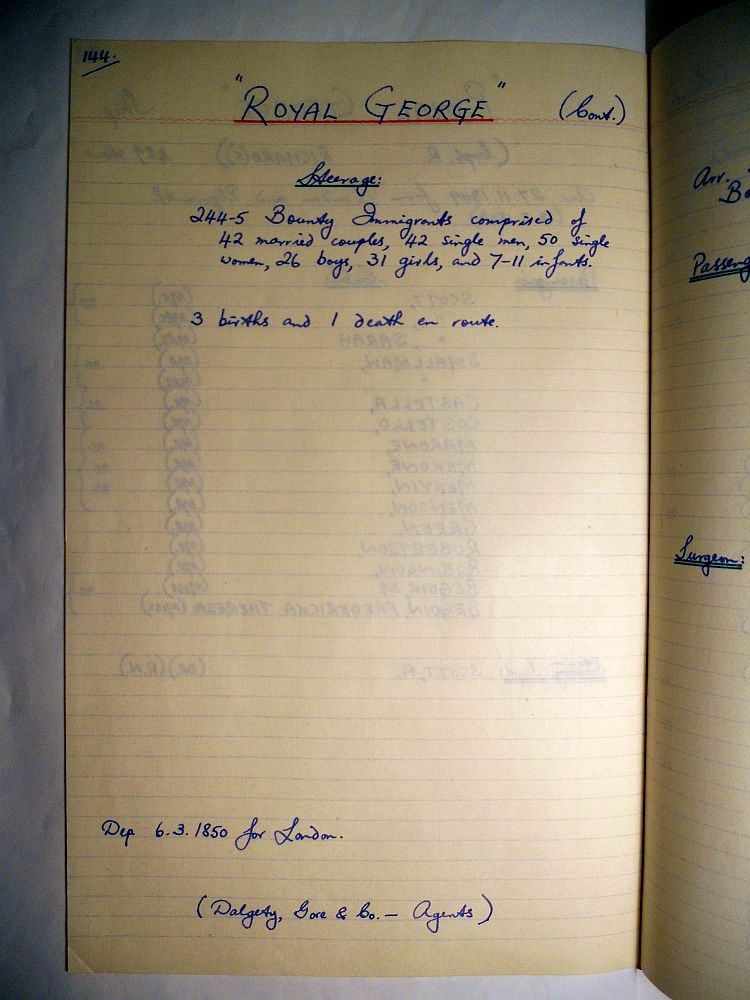 144.
"ROYAL GEORGE" (Cont.)
Steerage:
244-5 Bounty Immigrants comprised of
42 married couples, 42 single men, 50 single
women, 26 boys, 31 girls, and 7-11 infants.
3 births and 1 death en route.
Dep 6.3.1850 for London.
(Dalgety, Gore & Co. — Agents)
Arr.
Passeng
Surgeon: